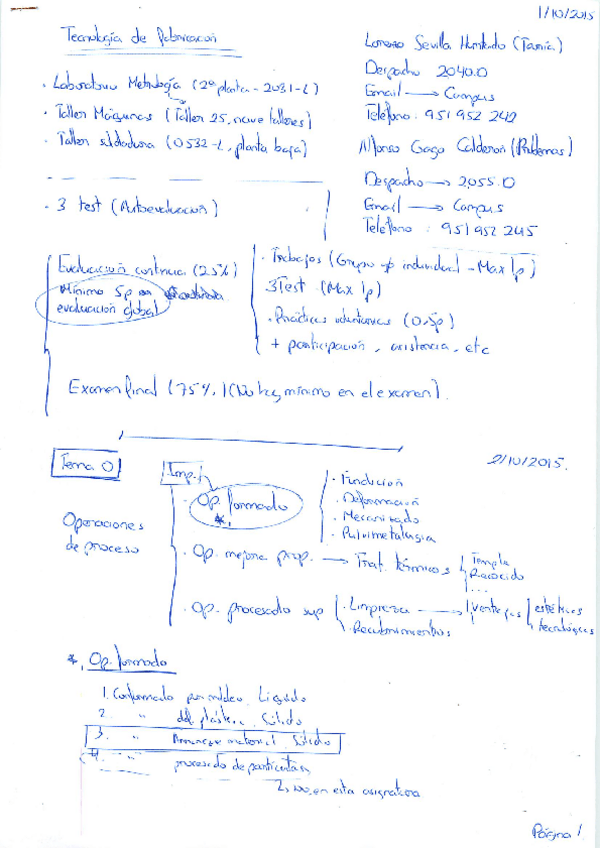 1/10/2015
Tecnología de fabricación
· Laboratorio Metrología (2ª planta - 2031-L)
· Taller Máquinas (Taller 25, nave talleres)
· Taller soldadura (0532-L, planta baja)
Lorenzo Sevilla Hurtado (Teoría)
Despacho 2040.O
Email → Campus
Teléfono: 951 952 242
Alfonso Gago Calderón (Problemas)
Despacho → 2055.O
Email → Campus
Teléfono: 951 952 245
· 3 test (Autoevaluación)
Evaluación continua (25%)
Mínimo 5p en
evaluación global
· Trabajos (Grupo y/o individual - Max 1p)
3Test (Max 1p)
· Prácticas voluntarias (0,5p)
+ participación, asistencia, etc
Examen final (75%) (No hay mínimo en el examen).
2/10/2015.
Tema 0
Operaciones
de proceso
Imp.!
· Op. formado
*.
· Fundición
· Deformación
· Mecanizado
· Pulvimetalurgia
· Op. mejora prop. → Trat. térmicos
Temple
Recocido
...
· Op. procesado sup
· Limpieza → ventajas
estéticas
tecnológicas
· Recubrimientos
*. Op. formado
1. Conformado por moldeo Líquido
2. " def. plástica Sólido
3. " Arrancar material Sólido
4. " procesado de partículas
↳ no en esta asignatura
Página 1